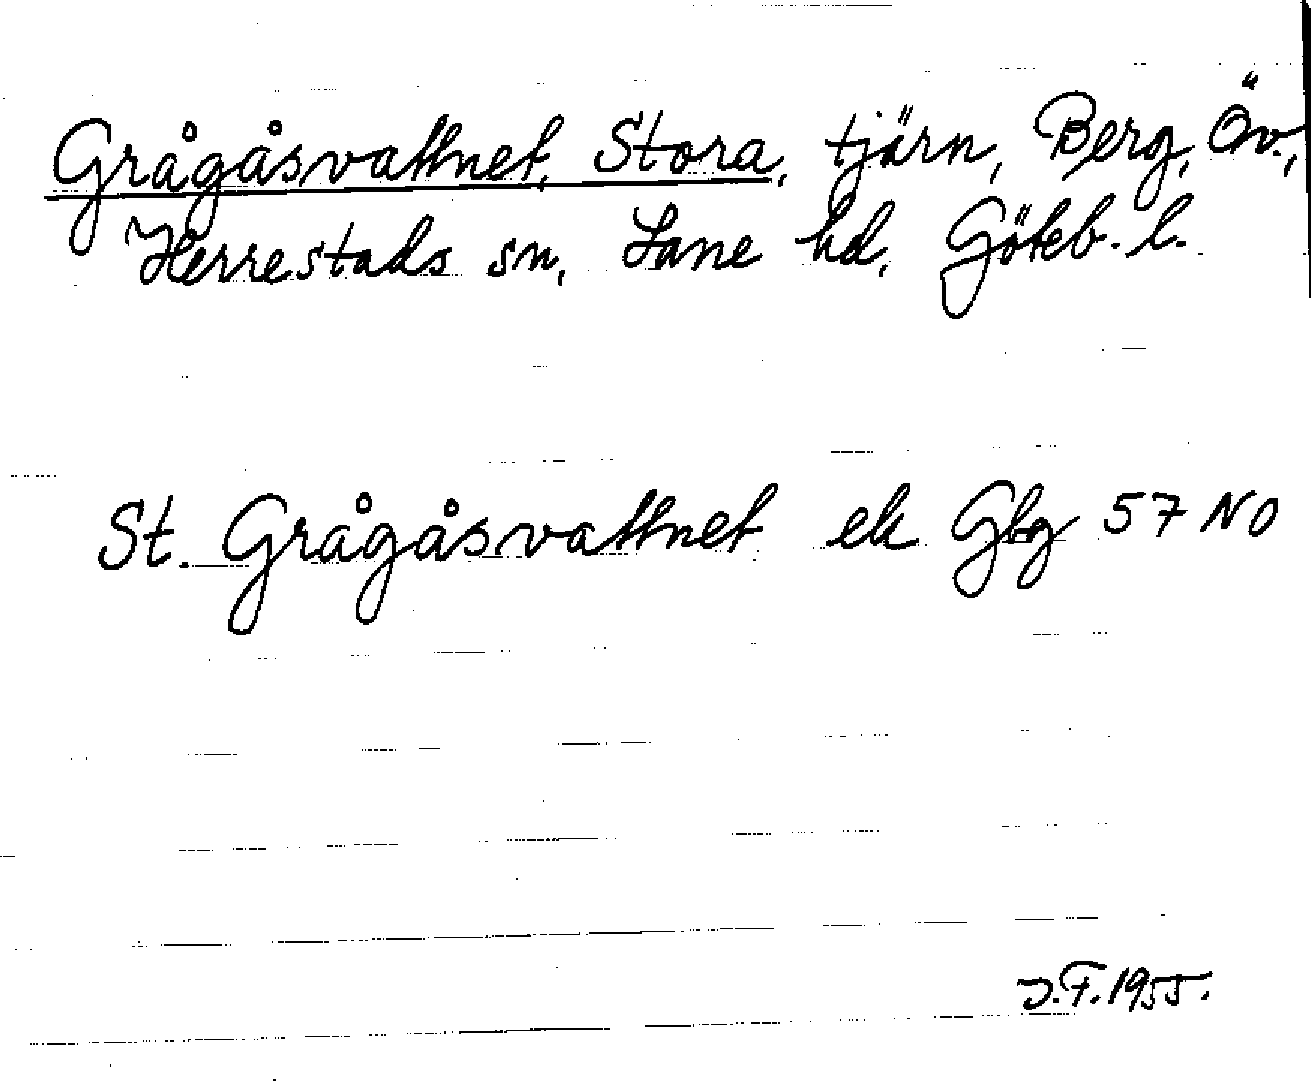 Grågåsvattnet, Stora, tjärn, Berg, Öv.,
Herrestads sn, Lane hd, Göteb. l.
St. Grågåsvattnet ek Gbg 57 NO
J.F. 1955.